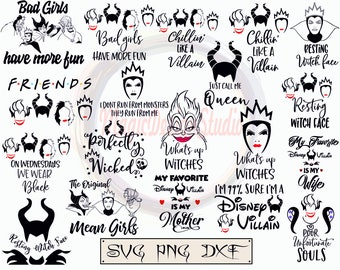 Bad Girls
have more fun
Bad girls
HAVE MORE FUN
Chillin'
LIKE A
Villain
Chillin'
LIKE A
Villain
RESTING
Witch face
F.R.I.E.N.D.S
I DON'T RUN FROM MONSTERS
THEY RUN FROM ME
JUST CALL ME
Queen
Resting
WITCH FACE
ON WEDNESDAYS
WE WEAR
Black
Perfectly
Wicked
What's up
WITCHES
What's up
WITCHES
My Favorite
Disney Villain
IS MY
Wife
Resting Witch Face
The Original
Mean Girls
MY FAVORITE
Disney Villain
IS MY
Mother
I'M 99% SURE I'M A
Disney
VILLAIN
POOR
Unfortunate
SOULS
SVG PNG DXF